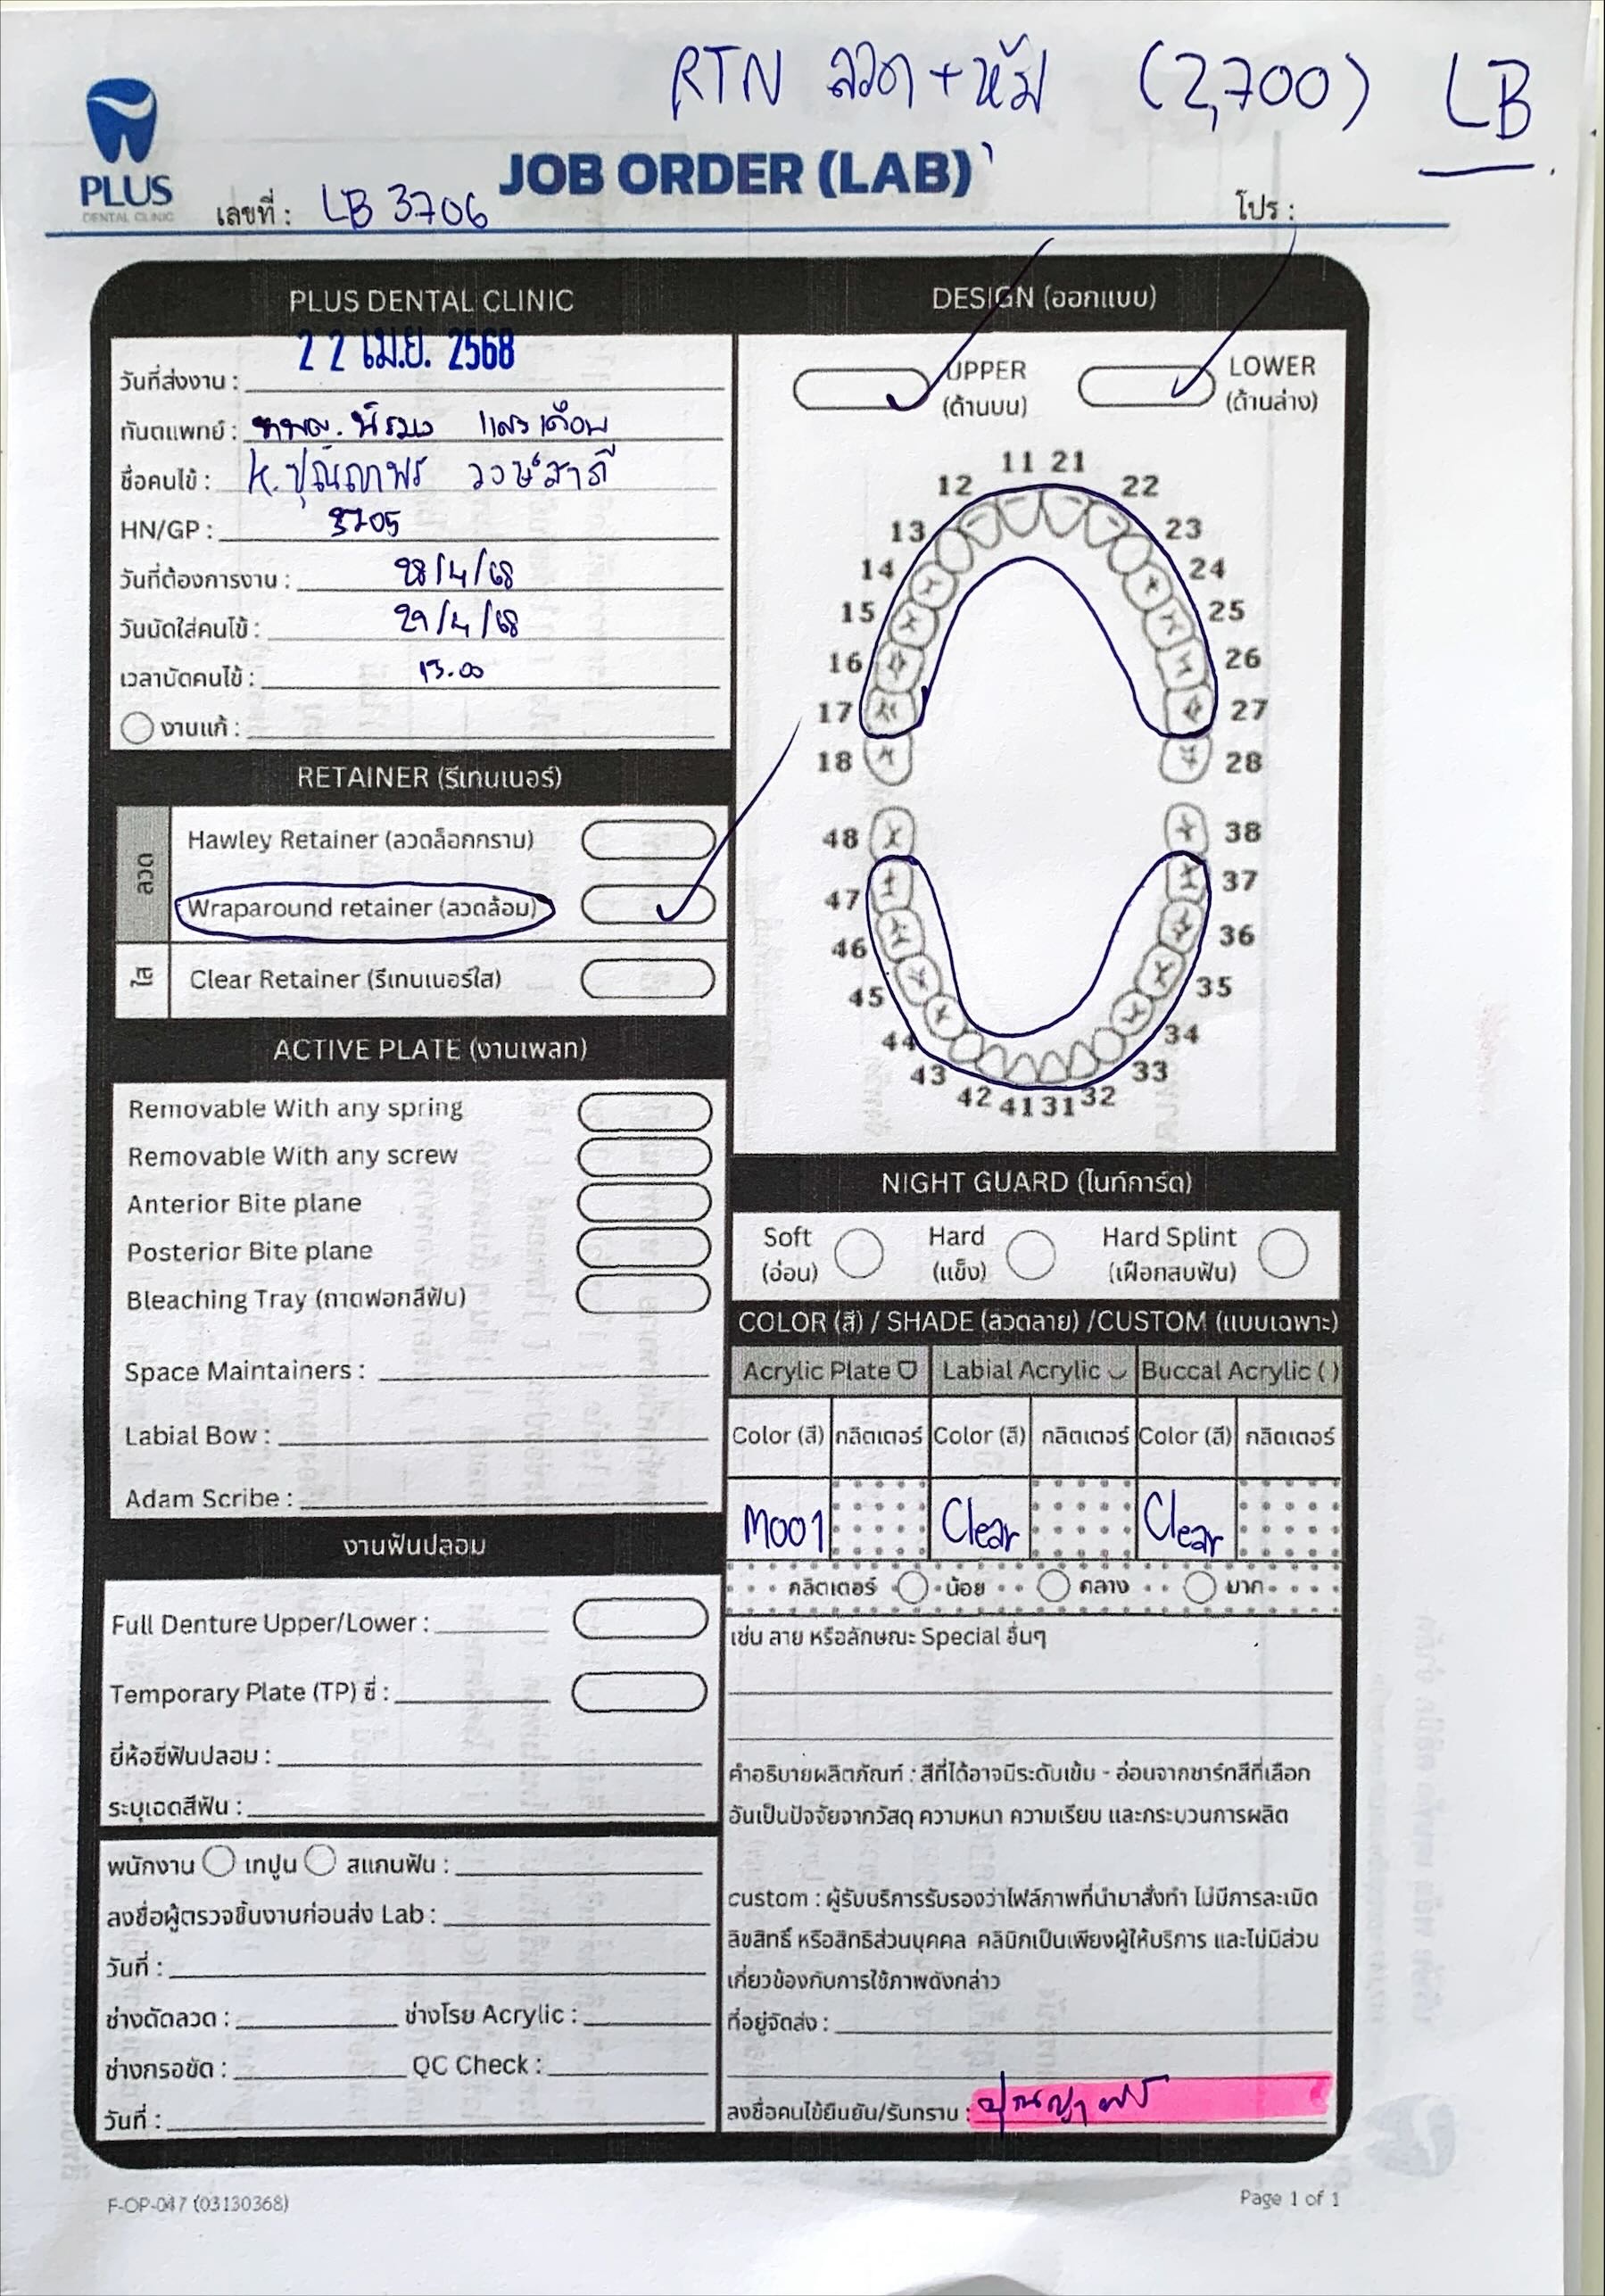 RTN ลวด + หุ้ม (2,700) LB
PLUS
DENTAL CLINIC
JOB ORDER (LAB)
เลขที่ : LB 3706
โปร :
PLUS DENTAL CLINIC
22 เม.ย. 2568
วันที่ส่งงาน :
ทันตแพทย์ : ทพญ.
ชื่อคนไข้ : K. ปุณณภาพร วงษ์สาลี
HN/GP : 3705
วันที่ต้องการงาน : 28/4/68
วันนัดใส่คนไข้ : 29/4/68
เวลานัดคนไข้ : 13.00
งานแก้ :
DESIGN (ออกแบบ)
UPPER
(ด้านบน)
LOWER
(ด้านล่าง)
11 21
12 22
13 23
14 24
15 25
16 26
17 27
18 28
48 38
47 37
46 36
45 35
44 34
43 33
42 41 31 32
RETAINER (รีเทนเนอร์)
ลวด
Hawley Retainer (ลวดล็อกกราม)
Wraparound retainer (ลวดล้อม)
ใส
Clear Retainer (รีเทนเนอร์ใส)
ACTIVE PLATE (งานเพลท)
Removable With any spring
Removable With any screw
Anterior Bite plane
Posterior Bite plane
Bleaching Tray (ถาดฟอกสีฟัน)
Space Maintainers :
Labial Bow :
Adam Scribe :
งานฟันปลอม
Full Denture Upper/Lower :
Temporary Plate (TP) ซี่ :
ยี่ห้อซี่ฟันปลอม :
ระบุเฉดสีฟัน :
พนักงาน เทปูน สแกนฟัน :
ลงชื่อผู้ตรวจชิ้นงานก่อนส่ง Lab :
วันที่ :
ช่างดัดลวด : ช่างโรย Acrylic :
ช่างกรอขัด : QC Check :
วันที่ :
NIGHT GUARD (ไนท์การ์ด)
Soft
(อ่อน)
Hard
(แข็ง)
Hard Splint
(เฝือกสบฟัน)
COLOR (สี) / SHADE (ลวดลาย) /CUSTOM (แบบเฉพาะ)
Acrylic Plate Labial Acrylic Buccal Acrylic ( )
Color (สี) กลิตเตอร์ Color (สี) กลิตเตอร์ Color (สี) กลิตเตอร์
M001 Clear Clear
กลิตเตอร์ น้อย กลาง มาก
เช่น ลาย หรือลักษณะ Special อื่นๆ
คำอธิบายผลิตภัณฑ์ : สีที่ได้อาจมีระดับเข้ม - อ่อนจากชาร์ทสีที่เลือก
อันเป็นปัจจัยจากวัสดุ ความหนา ความเรียบ และกระบวนการผลิต
custom : ผู้รับบริการรับรองว่าไฟล์ภาพที่นำมาสั่งทำ ไม่มีการละเมิด
ลิขสิทธิ์ หรือสิทธิส่วนบุคคล คลินิกเป็นเพียงผู้ให้บริการ และไม่มีส่วน
เกี่ยวข้องกับการใช้ภาพดังกล่าว
ที่อยู่จัดส่ง :
ลงชื่อคนไข้ยืนยัน/รับทราบ :
F-OP-047 (03130368)
Page 1 of 1